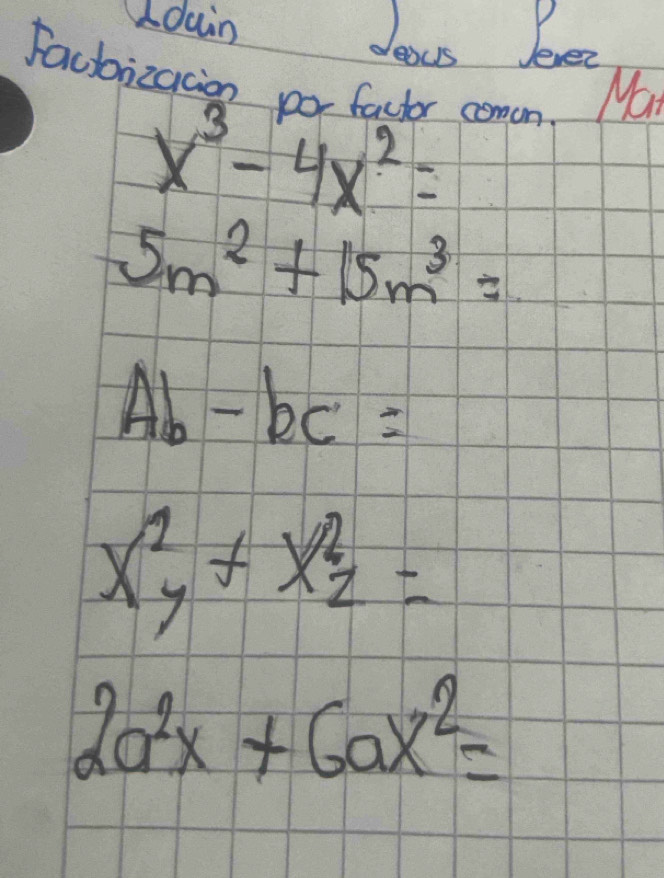 Jesus Perez
Factorizacion por factor comun. Mat
x³ - 4x² =
5m² + 15m³ =
Ab - bc =
x²y + x²z =
2a²x + 6ax² =